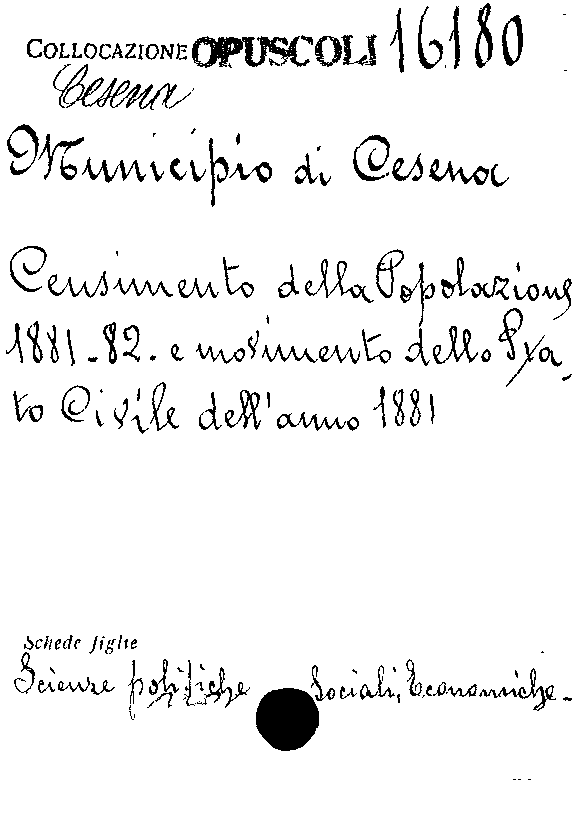 COLLOCAZIONE OPUSCOLI 16180
Cesena
Municipio di Cesena
Censimento della Popolazione
1881-82. e movimento dello Sta-
to Civile dell'anno 1881
Schede figlie
Scienze politiche Sociali, Economiche.